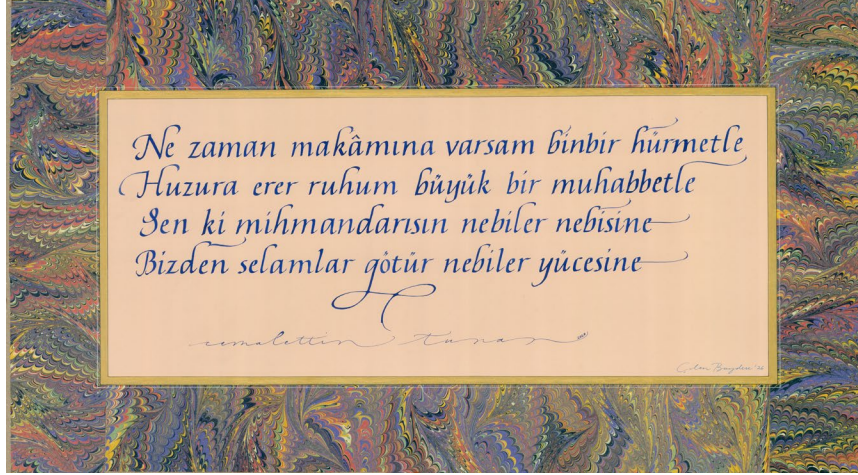 Ne zaman makâmına varsam binbir hürmetle
Huzura erer ruhum büyük bir muhabbetle
Sen ki mihmandarısın nebiler nebisine
Bizden selamlar götür nebiler yücesine
cemalettin